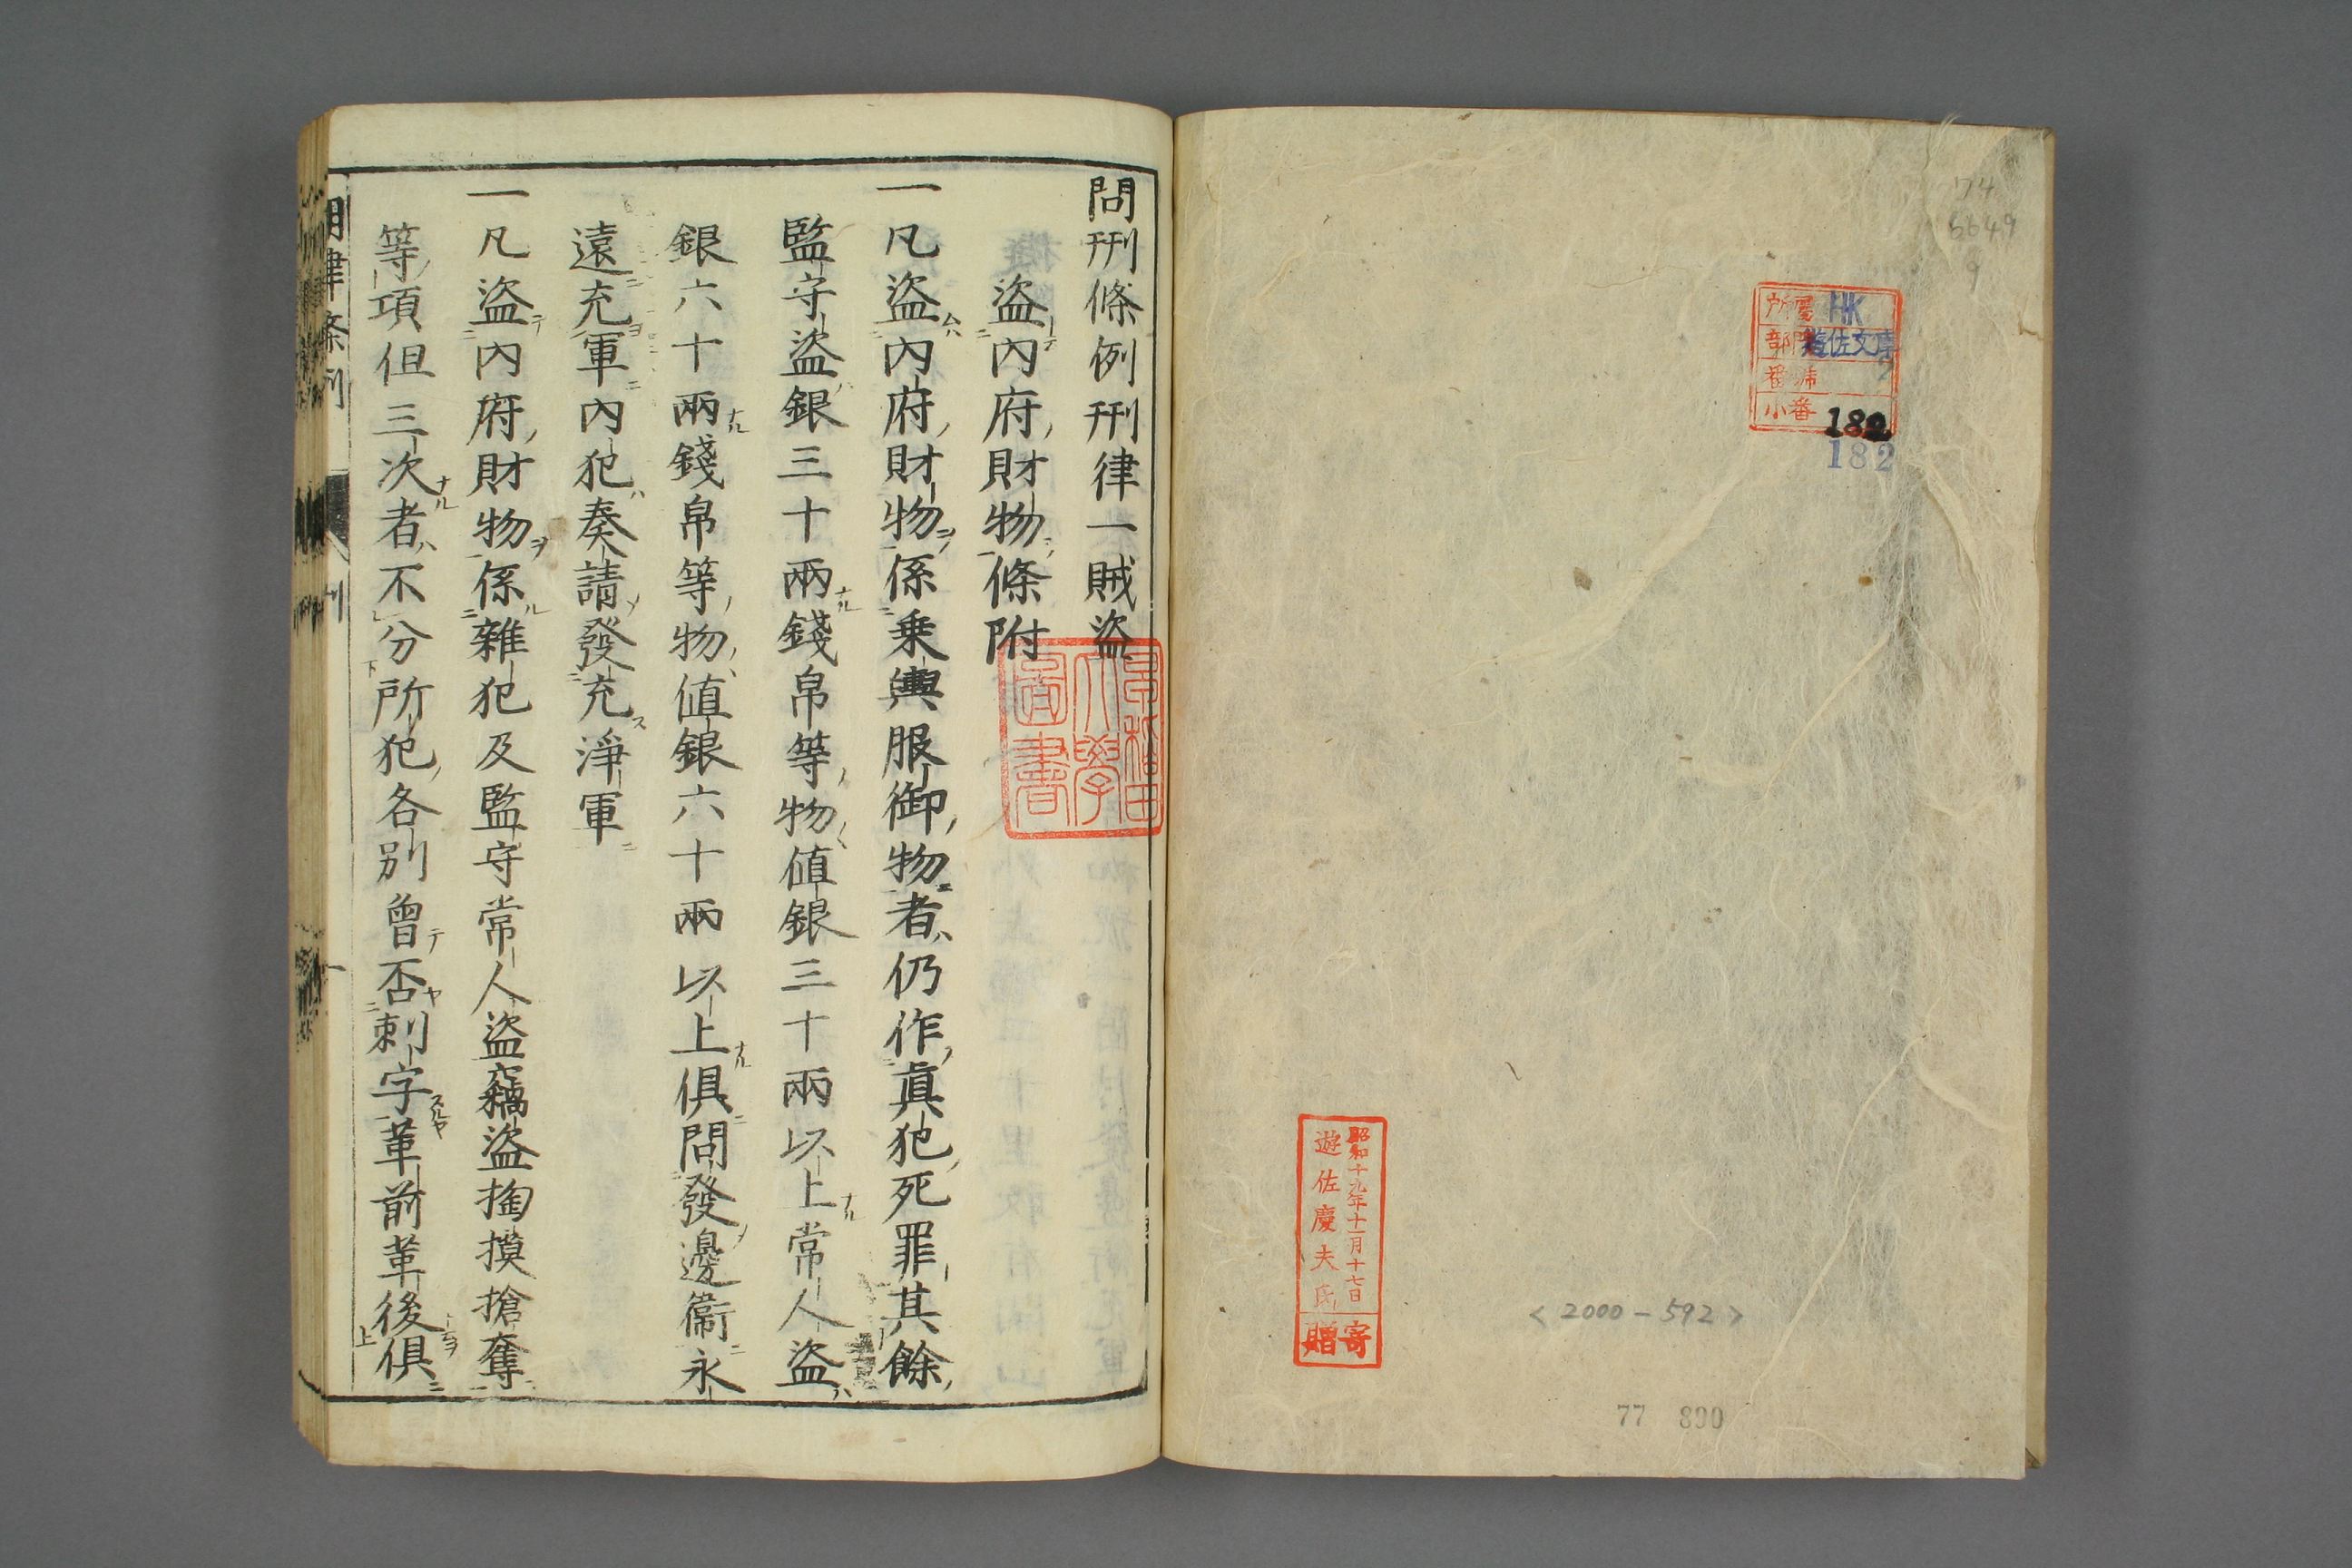 74
6649
9
所屬 HK
部門 遊佐文庫
番號 2
小番 182
182
昭和十九年十一月十七日
遊佐慶夫氏
寄贈
<2000-592>
77 890
問刑條例刑律一賊盜
盜內府財物條附
一凡盜內府財物係乗輿服御物者仍作眞犯死罪其餘
監守盜銀三十兩錢帛等物値銀三十兩以上常人盜
銀六十兩錢帛等物値銀六十兩以上俱問發邊衞永
遠充軍內犯奏請發充淨軍
一凡盜內府財物係雜犯及監守常人盜竊盜掏摸搶奪
等項但三次者不分所犯各別曾否刺字革前革後俱
早稻田大學圖書